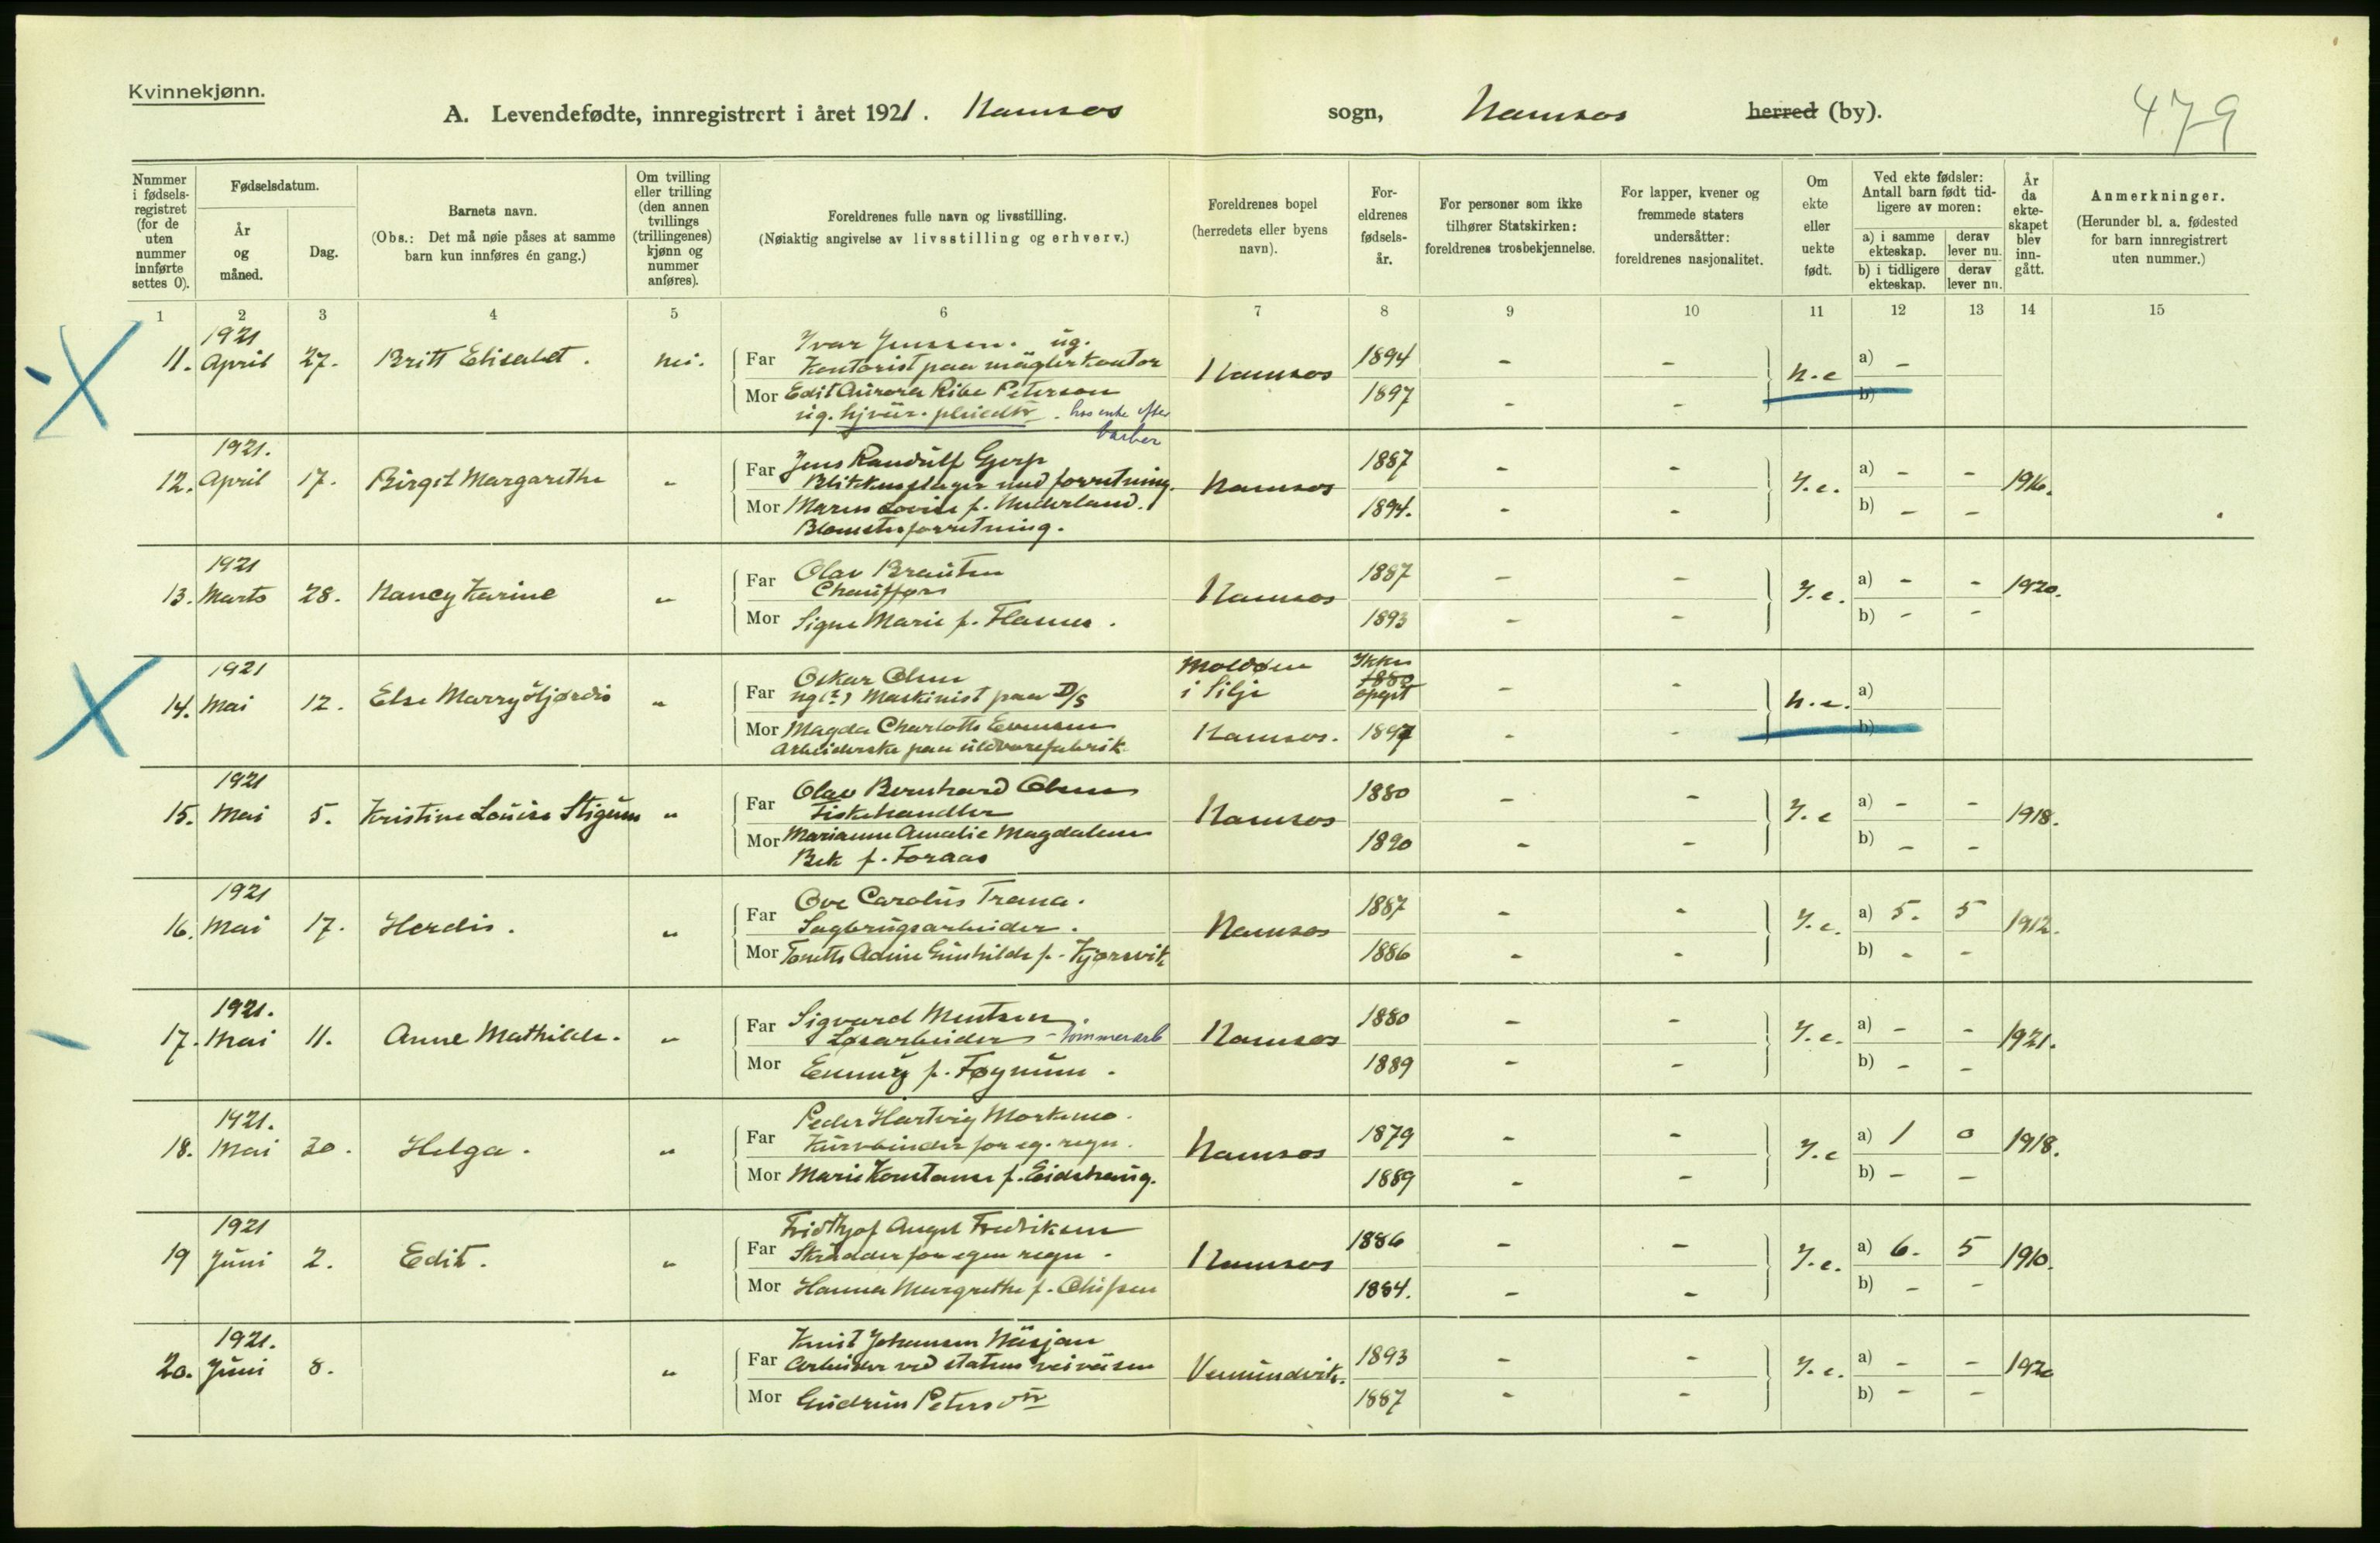 Kvinnekjønn.
A. Levendefødte, innregistrert i året 1921. Namsos sogn, Namsos herred (by).
479
Nummer i fødsels-registret (for de uten nummer innførte settes 0).
Fødselsdatum.
År og måned.
Dag.
Barnets navn.
(Obs.: Det må nøie påses at samme barn kun innføres én gang.)
Om tvilling eller trilling (den annen tvillings (trillingenes) kjønn og nummer anføres).
Foreldrenes fulle navn og livsstilling.
(Nøiaktig angivelse av livsstilling og erhverv.)
Foreldrenes bopel (herredets eller byens navn).
For-eldrenes fødsels-år.
For personer som ikke tilhører Statskirken: foreldrenes trosbekjennelse.
For lapper, kvener og fremmede staters undersåtter: foreldrenes nasjonalitet.
Om ekte eller uekte født.
Ved ekte fødsler: Antall barn født tid-ligere av moren:
a) i samme ekteskap.
derav lever nu.
b) i tidligere ekteskap.
derav lever nu.
År da ekte-skapet blev inn-gått.
Anmerkninger.
(Herunder bl. a. fødested for barn innregistrert uten nummer.)
1 2 3 4 5 6 7 8 9 10 11 12 13 14 15
1921
11. April 27. Britt Elisabet. nei.
Far Ivar Jenssen. ug.
Kontorist paa mæglerkontor
Namsos 1894 - - u.e a) -
Mor Edit Aurora Ribe Peterson
ug. hos enke efter barber
1897 - - b)
1921.
12. April 17. Birgit Margarethe "
Far Jens Randulf Gjerp
Blikkenslager med forretning.
Namsos 1887 - - Y.e. a) - - 1916.
Mor Maren Lovise f. Nederland.
Blomsterforretning.
1894. - - b) - -
1921
13. Marts 28. Nancy Karine "
Far Olav Brauten
Chauffør
Namsos 1887 - - Y.e. a) - - 1920.
Mor Signe Marie f. Hansen.
1893 - - b) - -
1921
14. Mai 12. Else Marry Hjørdis "
Far Oskar Olsen
ug (?) Maskinist paa D/S
Moldøen i Silje
Ikke 1880 opgit - - u.e. a)
Mor Magda Charlotte Evensen
Arbeiderske paa uldvarefabrik
Namsos. 1897 - - b)
1921
15. Mai 5. Kristine Louise Stigum "
Far Olav Bernhard Olsen
Fiskehandler
Namsos 1880 - - Y.e a) - - 1918.
Mor Marianne Amalie Magdalene
Bek f. Foraas
1890 - - b) - -
1921
16. Mai 17. Herdis. "
Far Ove Carolus Trana.
Sagbrugsarbeider.
Namsos 1887 - - Y.e. a) 5. 5 1912.
Mor Tonette Adine Gunhilde f. Kjørsvik
1886 - - b) - -
1921.
17. Mai 11. Anne Mathilde. "
Far Sigvard Mentsen.
Løsarbeider - tommerarb
Namsos 1880 - - Y.e. a) - - 1921.
Mor Emmy f. Føynum.
1889 - - b) - -
1921.
18. Mai 30. Helga. "
Far Peder Hartvig Morkemo.
Kurvbinder for eg. regn.
Namsos 1879 - - Y.e a) 1 0 1918.
Mor Marie Konstanse f. Eidshaug.
1889 - - b) - -
1921
19 Juni 2. Edit. "
Far Fridthjof Angel Fredriksen
Skrædder for egen regn.
Namsos 1886 - - Y.e. a) 6. 5 1910.
Mor Hanna Margrethe f. Olufsen
1884. - - b) - -
1921.
20. Juni 8. "
Far Knut Johansen Næsjan
Arbeider ved statens veivæsen
Vemundvik. 1893 - - Y.e. a) - - 1920
Mor Gudrun Peters dtr
1887 - - b) - -